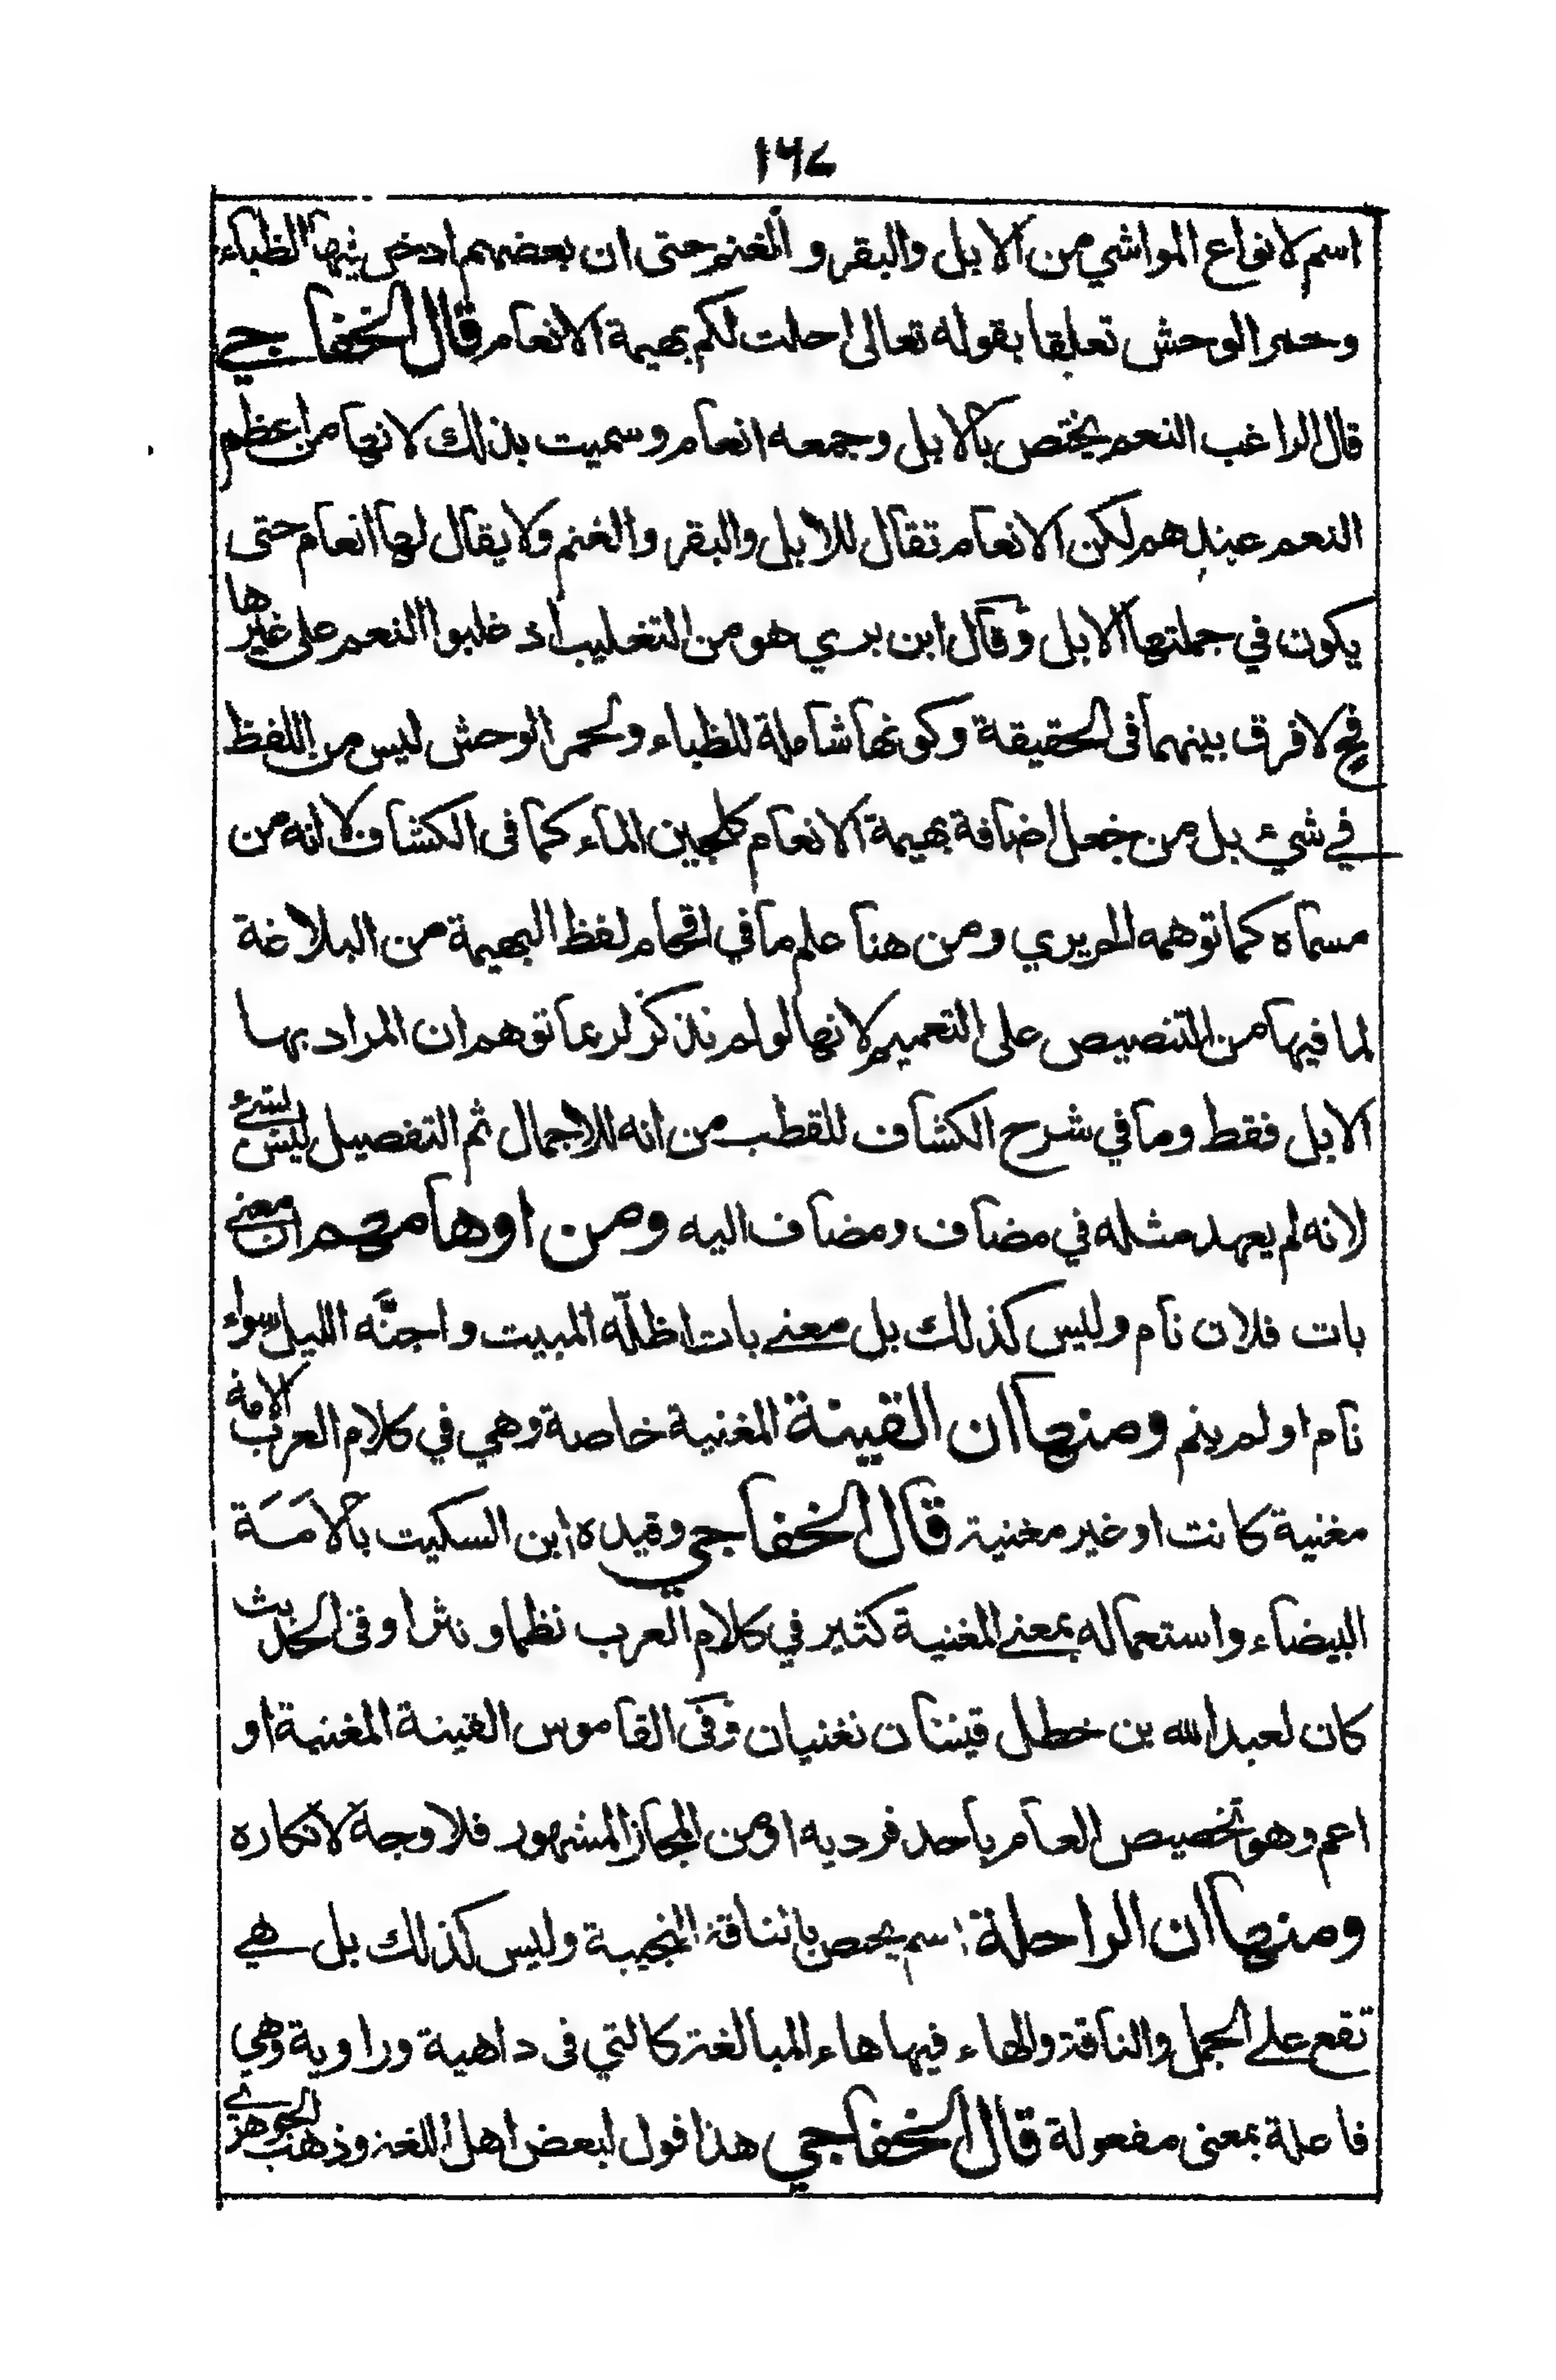 ١٦٤
اسم لانواع المواشي من الابل والبقر و الغنم حتى ان بعضهم ادخل فيها الظباء
وحمر الوحش تعلقا بقوله تعالى احلت لكم بهيمة الانعام قال الخفاجي
قال الراغب النعم يختص بالابل وجمعه انعام وسميت بذلك لانها من اعظم
النعم عندهم لكن الانعام تقال للابل والبقر والغنم ولا يقال لها انعام حتى
يكون في جملتها الابل وقال ابن بري هو من التغليب اذ غلبوا النعم على غيرها
فح لا فرق بينهما فى الحقيقة وكونها شاملة للظباء ولحمر الوحش ليس من اللفظ
في شيء بل من جعل اضافة بهيمة الانعام كلجين الماء كما فى الكشاف لا انه من
مسماه كما توهمه الحريري ومن هنا علم ما في اقحام لفظ البهيمة من البلاغة
لما فيها من التنصيص على التعميم لانها لو لم نذكر لربما توهم ان المراد بها
الابل فقط وما في شرح الكشاف للقطب من انه للاجمال ثم التفصيل ليس بشيء
لانه لم يعهد مثله في مضاف ومضاف اليه ومن اوهامهم ان معنى
بات فلان نام وليس كذلك بل معنى بات اظلّه المبيت واجنَّه الليل سواء
نام او لم ينم ومنها ان القينة المغنية خاصة وهي في كلام العرب الامة
مغنية كانت او غير مغنية قال الخفاجي وقيده ابن السكيت بالامَة
البيضاء واستعماله بمعنى المغنية كثير في كلام العرب نظما ونثرا وفى الحديث
كان لعبد الله بن خطل قينتان تغنيان وفى القاموس القينة المغنية او
اعم وهو تخصيص العام باحد فرديه او من المجاز المشهور فلا وجه لانكاره
ومنها ان الراحلة اسم يختص بالناقة النجيبة وليس كذلك بل هي
تقع على الجمل والناقة والهاء فيها هاء المبالغة كالتي فى داهية وراوية وهي
فاعلة بمعنى مفعولة قال الخفاجي هذا قول لبعض اهل اللغة وذهب الجوهري